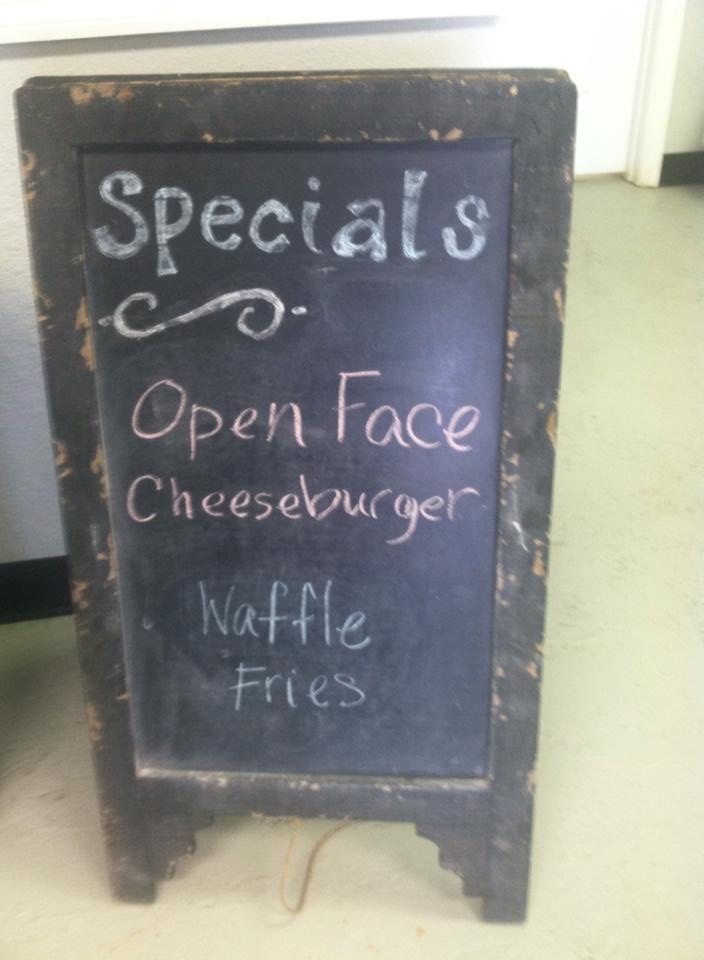 Specials
Open Face
Cheeseburger
Waffle
Fries